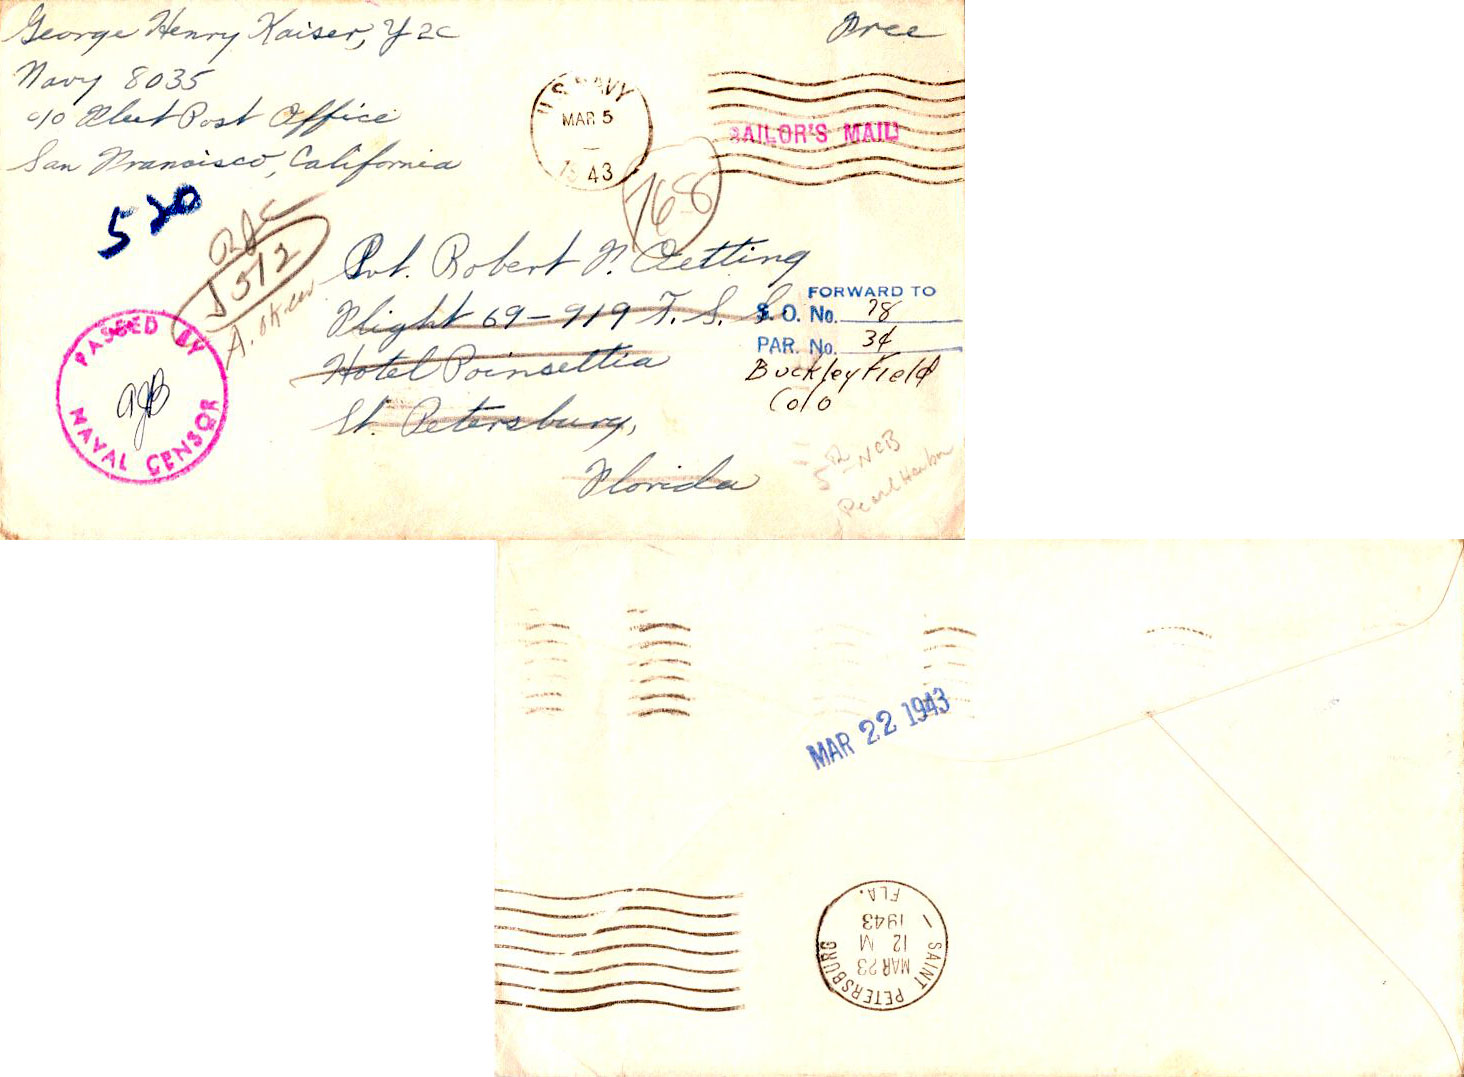 George Henry Kaiser, Y2c
Navy 8035
c/o Fleet Post Office
San Francisco, California
Free
U.S. NAVY
MAR 5
1943
SAILOR'S MAIL
768
520
512
Pvt. Robert F. Oetting
Flight 69-919 T. S. S.
Hotel Poinsettia
St. Petersburg,
Florida
FORWARD TO
S. O. No. 78
PAR. No. 34
Buckley Field
Colo
PASSED BY
NAVAL CENSOR
NCB
Pearl Harbor
MAR 22 1943
SAINT PETERSBURG
MAR 23
12 M
1943
FLA.